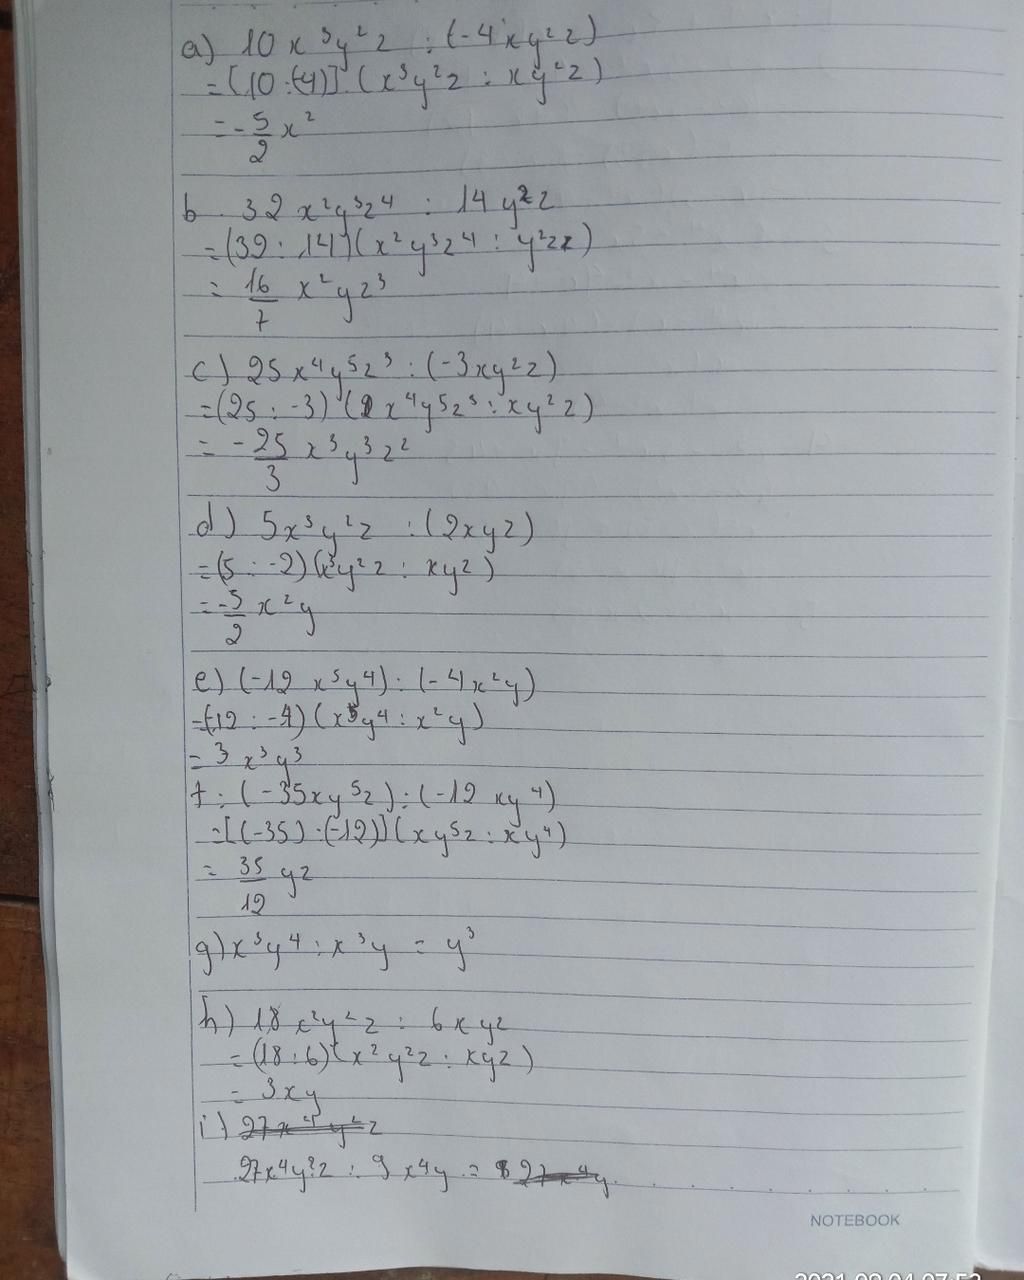 a) 10x³y²z : (-4xy²z)
= [10 : (-4)] . (x³y²z : xy²z)
= -5/2 x²
b. 32x²y³z⁴ : 14y²z
= (32 : 14)(x²y³z⁴ : y²z)
= 16/7 x²yz³
c) 25x⁴y⁵z³ : (-3xy²z)
= (25 : -3) (x⁴y⁵z³ : xy²z)
= -25/3 x³y³z²
d) 5x³y²z : (2xyz)
= (5 : -2)(x³y²z : xyz)
= -5/2 x²y
e) (-12x⁵y⁴) : (-4x²y)
= (-12 : -4) (x⁵y⁴ : x²y)
= 3x³y³
f : (-35xy⁵z) : (-12xy⁴)
= [(-35) : (-12)] (xy⁵z : xy⁴)
= 35/12 yz
g) x³y⁴ : x³y = y³
h) 18x²y²z : 6xyz
= (18 : 6)(x²y²z : xyz)
= 3xy
i) 27x⁴y²z
27x⁴y²z : 9x⁴y =
NOTEBOOK